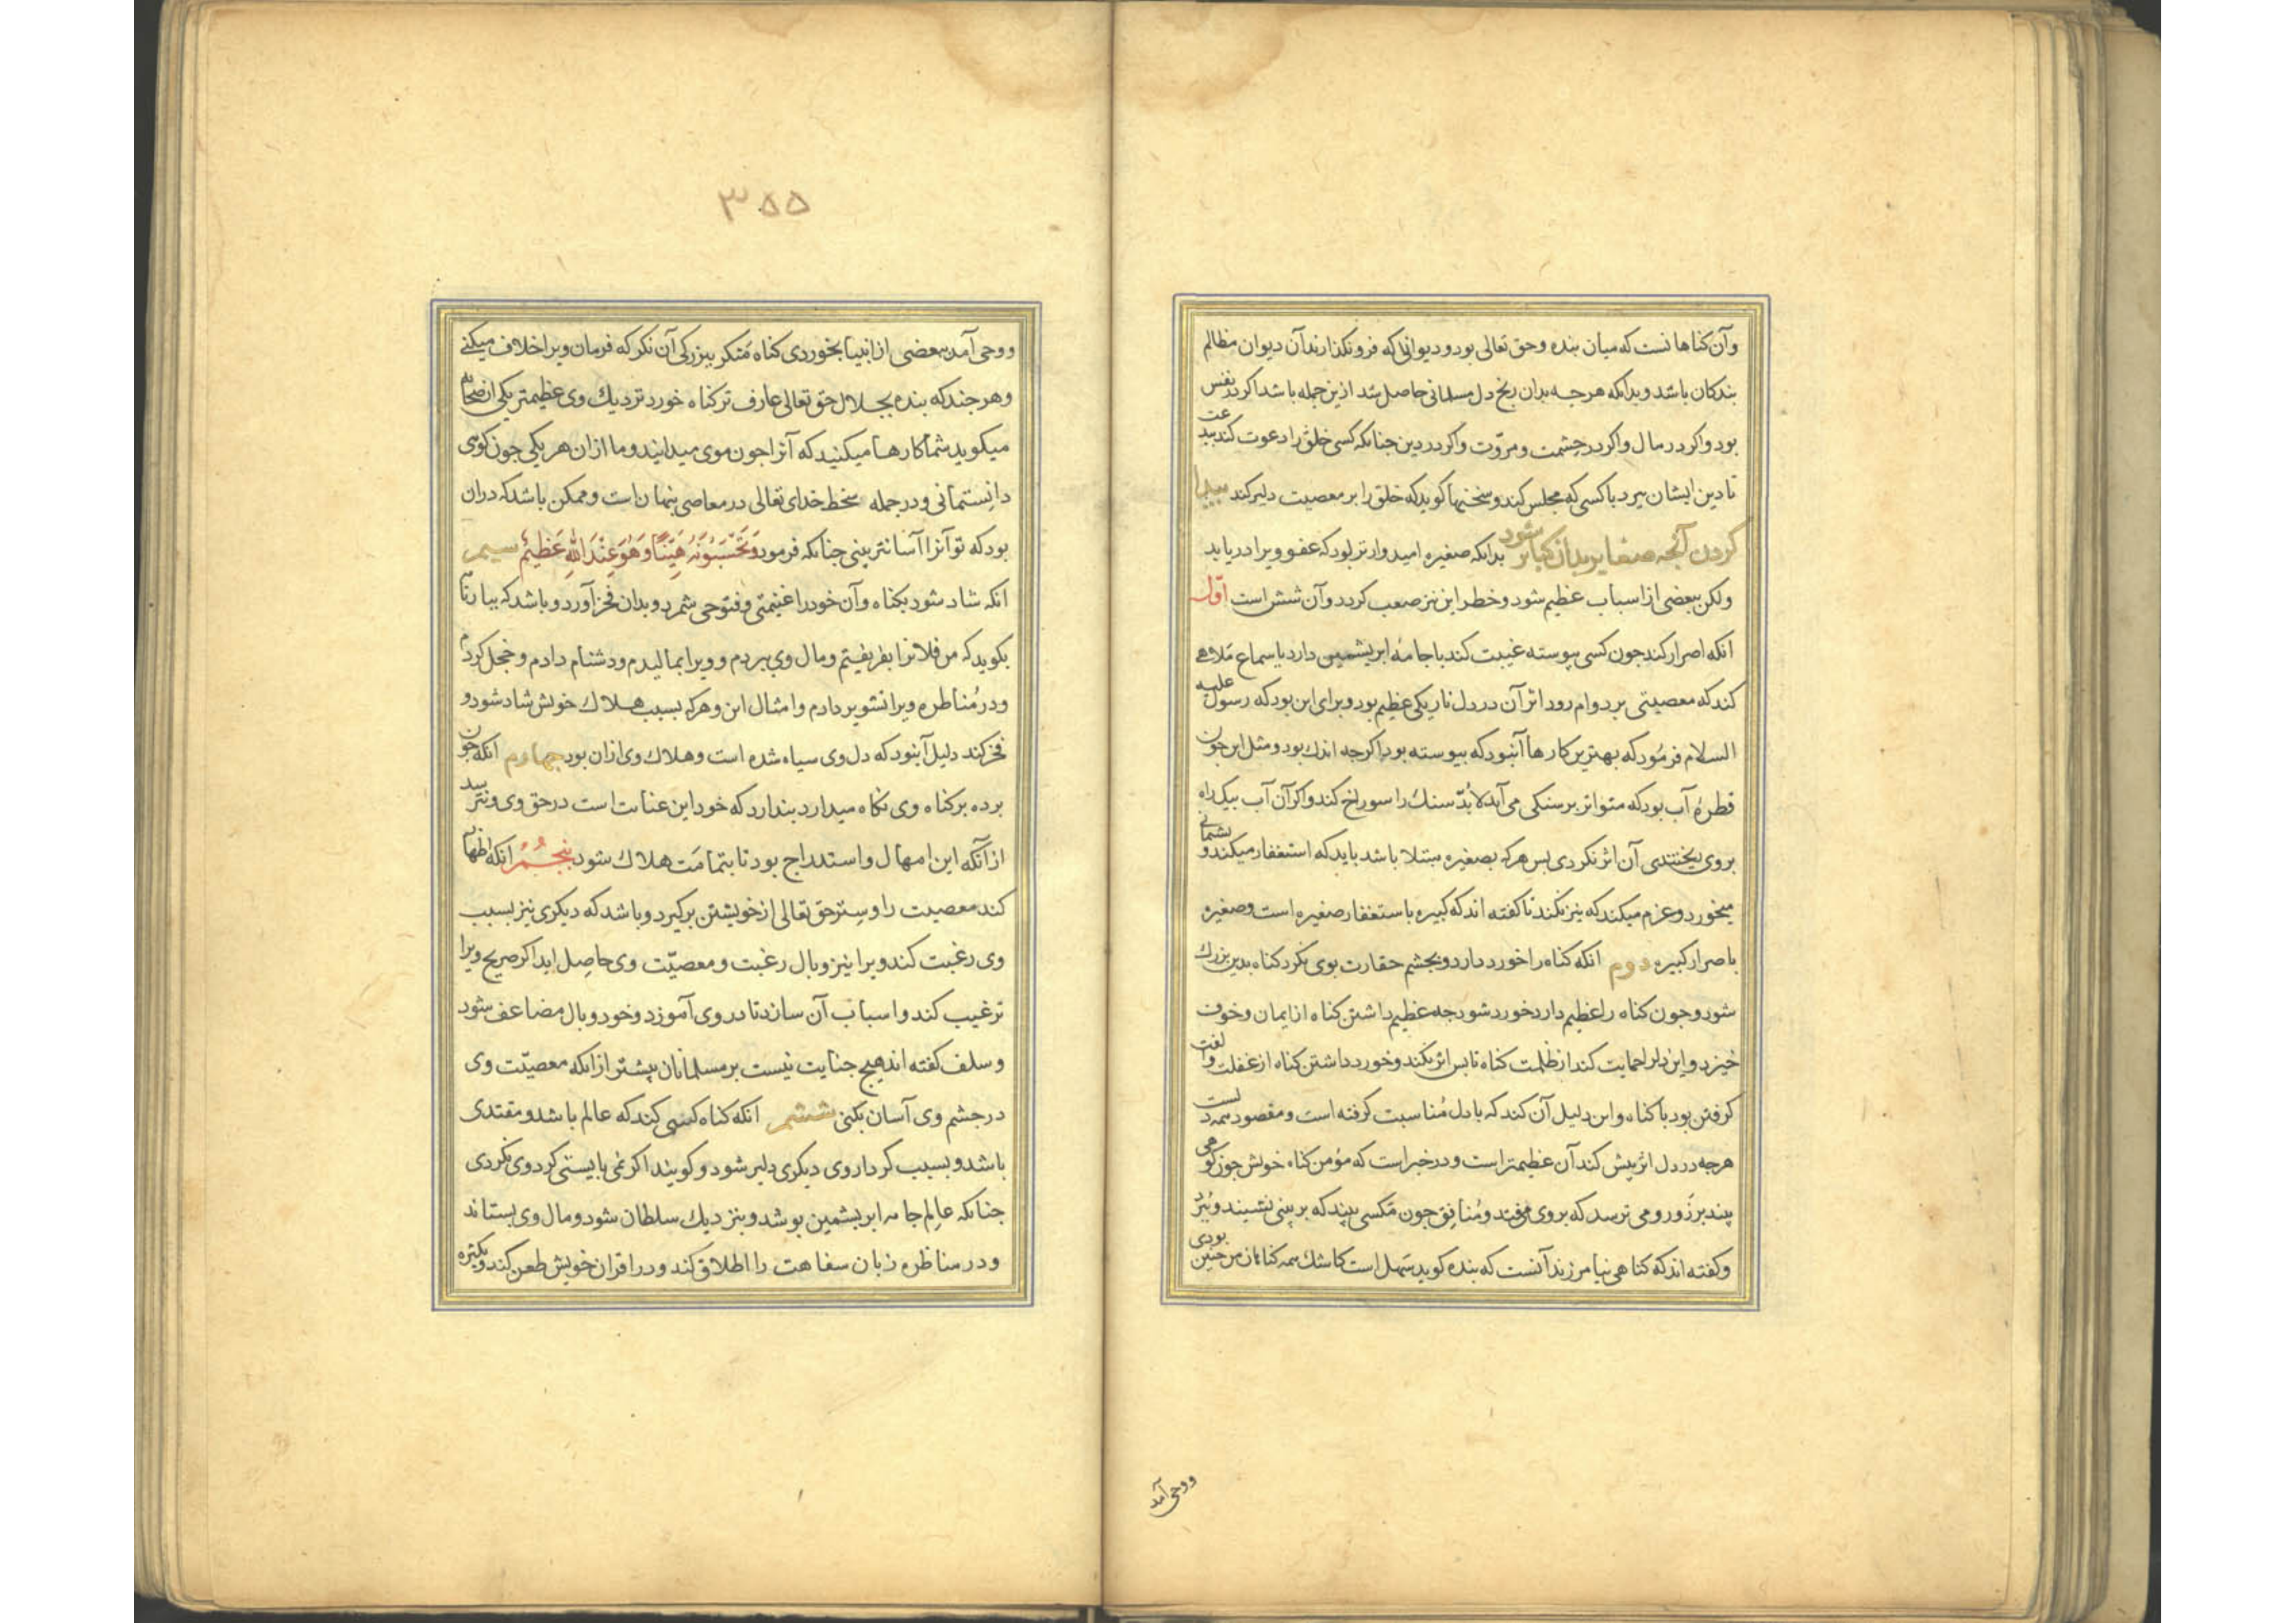 وآن کناها نست که میان بنده وحق تعالی بود ودیوانی که فرو نکذارند آن دیوان مظالم
بندکان باشد وبدانکه هرجه بدان رنج دل مسلمانی حاصل شد ازین جمله باشد اکر در نفس
بود واکر در مال واکر در حشمت ومروّت واکر در دین جنانکه کسی خلق را دعوت کند ببدعت
تا دین ایشان ببرد یا کسی که مجلس کند وسخنها کوید که خلق را بر معصیت دلیر کند پیدا
کردن آنجه صغایر بدان کبایر شود بدانکه صغیره امیدوارتر بود که عفو ویرا دریابد
ولکن ببعضی از اسباب عظیم شود وخطر این نیز صعب کردد وآن شش است اوّل
انکه اصرار کند جون کسی پیوسته غیبت کند یا جامهٔ ابریشمین دارد یا سماع ملاهی
کند که معصیتی بر دوام رود اثر آن در دل تاریکی عظیم بود وبرای این بود که رسول علیه
السلام فرمُود که بهترین کارها آنبود که پیوسته بود اکرجه اندك بود ومثل این جون
قطرهٔ آب بود که متواتر بر سنکی می آید لابُدّ سنك را سوراخ کند واکر آن آب بیکراه
بروی ریختندی آن اثر نکردی بس هرکه بصغیره مبتلا باشد باید که استغفار میکند وپشمانی
میخورد وعزم میکند که نیز نکند تا کفته اند که کبیره باستغفار صغیره است وصغیره
باصرار کبیره دوم انکه کناه را خورد دارد وبجشم حقارت بوی نکرد کناه بدین بزرك
شود وجون کناه را عظیم دارد خورد شود جه عظیم داشتن کناه از ایمان وخوف
خیزد واین دلرا حمایت کند از ظلمت کناه تا بس اثر نکند وخورد داشتن کناه از غفلت والفت
کرفتن بود با کناه واین دلیل آن کند که با دل مُناسبت کرفته است ومقصود همه دلست
هرجه در دل اثر بیش کند آن عظیمتر است ودر خبر است که مؤمن کناه خویش جون کوهی
بیند بر زَور ومی ترسد که بروی افتد ومُنافق جون مکسی بیند که بر بینی نشیند وببرد
وکفته اند که کناهی نیامرزند آنست که بنده کوید سهل است کاشك همه کناهان من جنین بودی
ووحی آمد
۳۵۵
ووحی آمد ببعضی از انبیا بخوردی کناه مَنکر ببزرکی آن نکر که فرمان ویرا خلاف میکنی
وهر جند که بنده بجلال حق تعالی عارف تر کناه خورد نزدیك وی عظیمتر یکی از صحابه
میکوید شما کارها میکنید که آنرا جون موی میدانید وما ازان هر یکی جون کوهی
دانستمانی ودر جمله سخط خدای تعالی در معاصی پنهان است وممکن باشد که دران
بود که تو آنرا آسانتر بینی جنانکه فرمود وَتَحْسَبُونَهُ هَیِّنًا وَهُوَ عِنْدَ اللهِ عَظِیمٌ سیم
انکه شاد شود بکناه وآن خود را غنیمتی وفتوحی شمرد وبدان فخر آورد وباشد که ببارنامه
بکوید که من فلانرا بفریفتم ومال وی ببردم وویرا بمالیدم ودشنام دادم وخجل کردم
ودر مُناظره ویرا تشویر دادم وامثال این وهرکه بسبب هلاك خویش شاد شود و
فخر کند دلیل آنبود که دل وی سیاه شده است وهلاك وی ازان بود جهارم انکه جون
برده بر کناه وی نکاه میدارد بندارد که خود این عنایت است در حق وی ونترسد
از آنکه این امهال واستدراج بود تا بتمامَت هلاك شود پنجُم انکه اظهار
کند معصیت را وسِتر حق تعالی از خویشتن برکیرد وباشد که دیکری نیز بسبب
وی رغبت کند ویرا نیز وبال رغبت ومعصیّت وی حاصِل اید اکر صریح ویرا
ترغیب کند واسباب آن سازد تا در وی آموزد وخود وبال مضاعف شود
وسلف کفته اند هیج جنایت نیست بر مسلمانان بیشتر از انکه معصیّت وی
در جشم وی آسان بکنی ششم انکه کناه کسی کند که عالم باشد ومقتدی
باشد وبسبب کردار وی دیکری دلیر شود وکویند اکر نمی بایستی کرد وی نکردی
جنانکه عالِم جامه ابریشمین بوشد وبنزدیك سلطان شود ومال وی بستاند
ودر مناظره زبان سفاهت را اطلاق کند ودر اقران خویش طعن کند وبکثرة